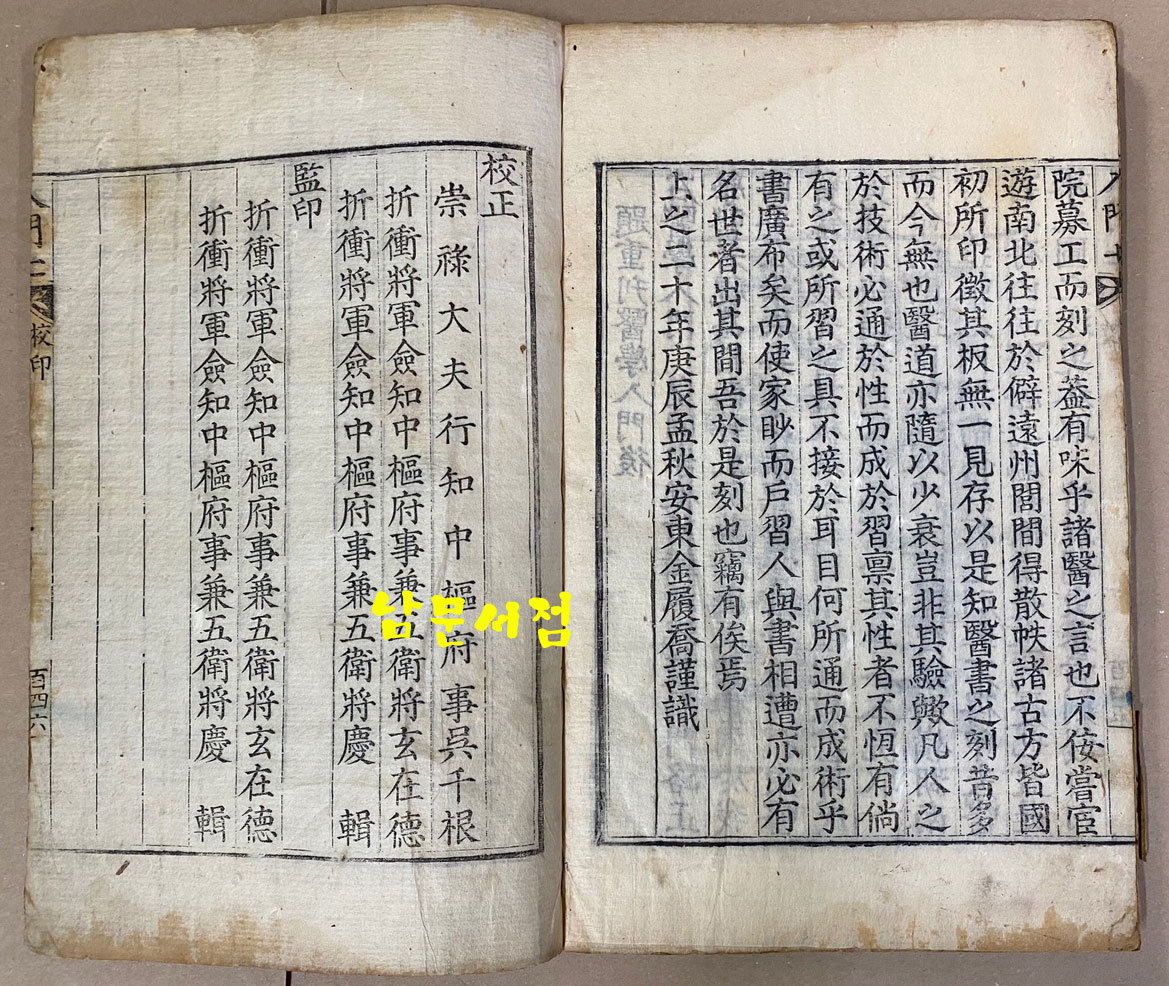 院募工而刻之蓋有味乎諸醫之言也不佞嘗宦
遊南北往往於僻遠州閭間得散帙諸古方皆國
初所印徵其板無一見存以是知醫書之刻昔多
而今無也醫道亦隨以少衰豈非其驗歟凡人之
於技術必通於性而成於習稟其性者不恒有倘
有之或所習之具不接於耳目何所通而成術乎
書廣布矣而使家眇而戶習人與書相遭亦必有
名世者出其間吾於是刻也竊有俟焉
上之二十年庚辰孟秋安東金履喬謹識
題重刊醫學入門後
校正
崇祿大夫行知中樞府事吳千根
折衝將軍僉知中樞府事兼五衛將玄在德
折衝將軍僉知中樞府事兼五衛將慶 輯
監印
折衝將軍僉知中樞府事兼五衛將玄在德
折衝將軍僉知中樞府事兼五衛將慶 輯
校印
百四六
남문서점